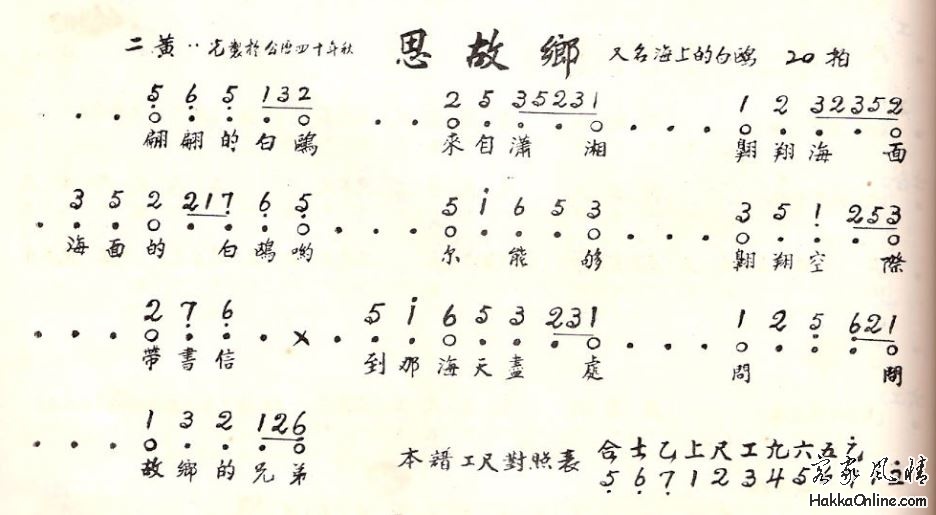 二黃‥光製於公曆四十年秋 思故鄉 又名海上的白鷗 20拍
5 6 5 132 2 5 35231 1 2 32352
翩翩的白鷗 來自瀟湘 翱翔海面
3 5 2 217 6 5 5 i 6 5 3 3 5 1 253
海面的白鷗喲 尔能够 翱翔空際
2 7 6 × 5 i 6 5 3 231 1 2 5 621
帶書信 到那海天盡處 問問
1 3 2 126
故鄉的兄弟
本譜工尺對照表 合士乙上尺工凡六五
5 6 7 1 2 3 4 5
客家風情
HakkaOnline.com